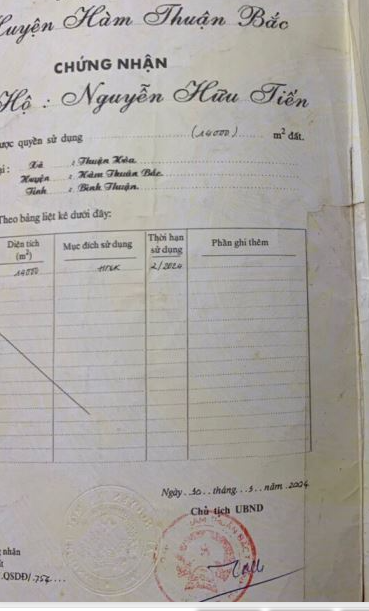 Huyện Hàm Thuận Bắc
CHỨNG NHẬN
Hộ : Nguyễn Hữu Tiến
ược quyền sử dụng (14000) m² đất.
ại : Xã : Thuận Hòa
Huyện : Hàm Thuận Bắc.
Tỉnh : Bình Thuận.
Theo bảng liệt kê dưới đây:
Diện tích (m²) Mục đích sử dụng Thời hạn sử dụng Phần ghi thêm
14000 2/2024
Ngày 30 tháng 5 năm 2004
Chủ tịch UBND
HÀM THUẬN BẮC
nhận
QSDĐ/ 754